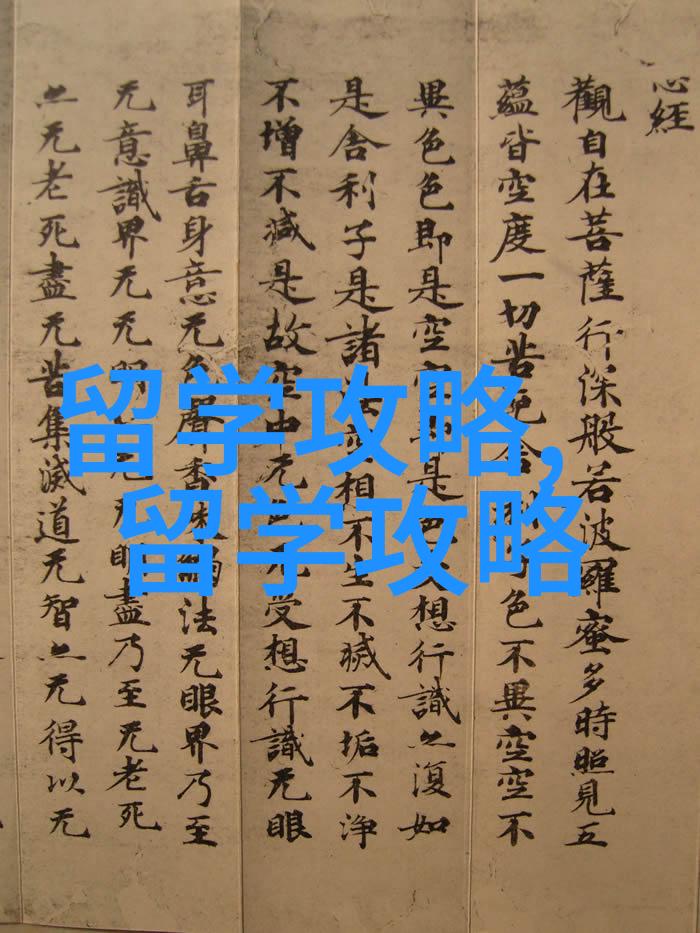 心經
觀自在菩薩行深般若波羅蜜多時照見五
蘊皆空度一切苦厄舍色不異空空不
異色色即是空空即是想行識亦復如
是舍利子是諸法空相不生不滅不垢不淨
不增不減是故空中无无受想行識无眼
耳鼻舌身意无色聲香味觸法无眼界乃至
无意識界无无明无无明盡乃至无老死
亦无老死盡无苦集滅道无智亦无得以无
留学攻略,
留学攻略